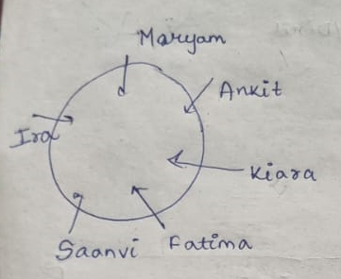 Maryam
Ankit
Ira
Kiara
Saanvi Fatima